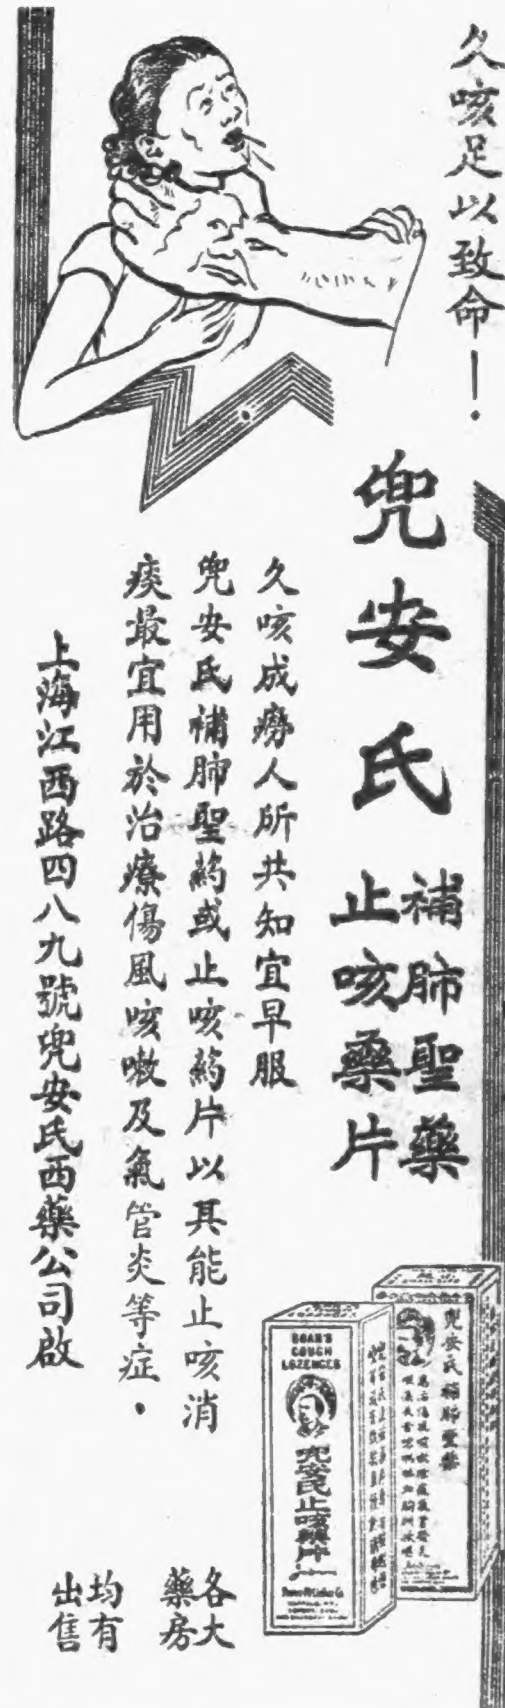 久咳足以致命！
兜安氏
補肺聖藥
止咳藥片
久咳成癆人所共知宜早服
兜安氏補肺聖葯或止咳葯片以其能止咳消
痰最宜用於治療傷風咳嗽及氣管炎等症．
上海江西路四八九號兜安氏西藥公司啟
各大
藥房
均有
出售
兜安氏補肺聖藥
DOAN'S
COUGH
LOZENGES
兜安氏止咳藥片